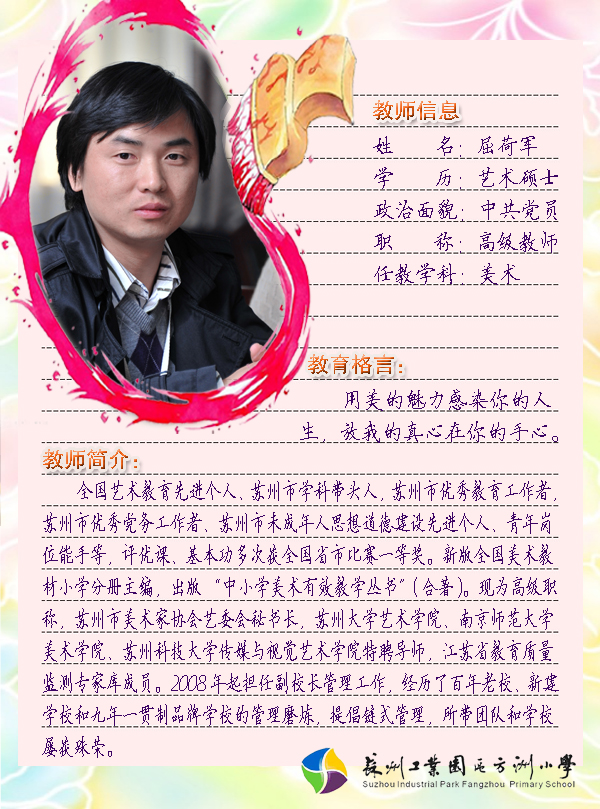 教师信息
姓 名：屈荷军
学 历：艺术硕士
政治面貌：中共党员
职 称：高级教师
任教学科：美术
教育格言：
用美的魅力感染你的人
生，放我的真心在你的手心。
教师简介：
全国艺术教育先进个人、苏州市学科带头人，苏州市优秀教育工作者，
苏州市优秀党务工作者、苏州市未成年人思想道德建设先进个人、青年岗
位能手等，评优课、基本功多次获全国省市比赛一等奖。新版全国美术教
材小学分册主编，出版“中小学美术有效教学丛书”（合著）。现为高级职
称，苏州市美术家协会艺委会秘书长，苏州大学艺术学院、南京师范大学
美术学院、苏州科技大学传媒与视觉艺术学院特聘导师，江苏省教育质量
监测专家库成员。2008年起担任副校长管理工作，经历了百年老校、新建
学校和九年一贯制品牌学校的管理磨炼，提倡链式管理，所带团队和学校
屡获殊荣。
苏州工业园区方洲小學
Suzhou Industrial Park Fangzhou Primary School